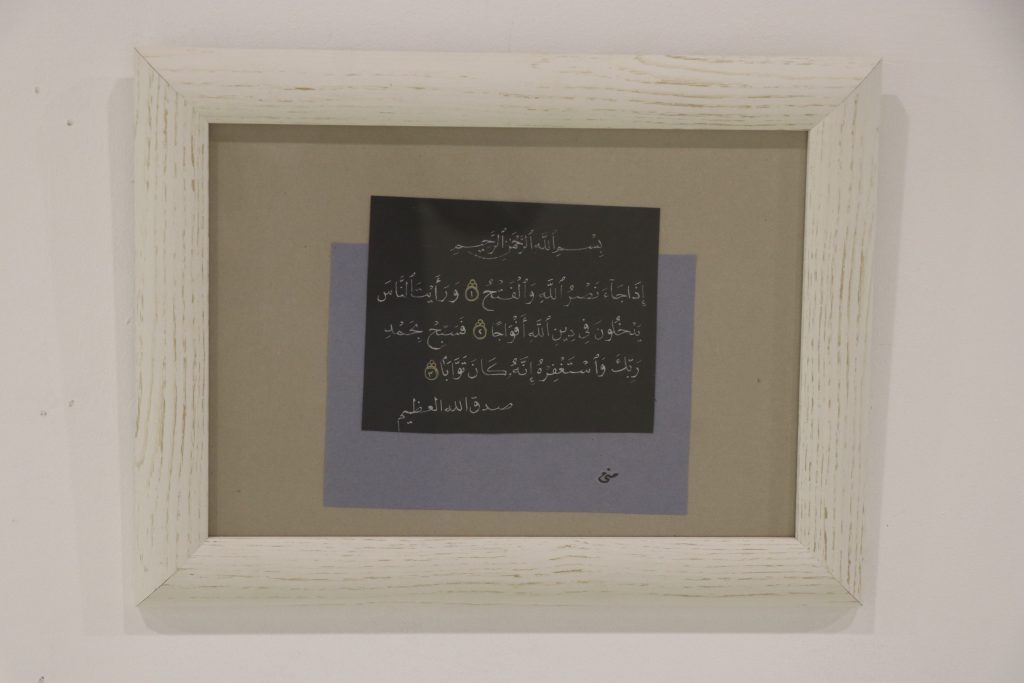 بِسْمِ ٱللَّهِ ٱلرَّحْمَٰنِ ٱلرَّحِيمِ
إِذَا جَآءَ نَصْرُ ٱللَّهِ وَٱلْفَتْحُ ١ وَرَأَيْتَ ٱلنَّاسَ
يَدْخُلُونَ فِى دِينِ ٱللَّهِ أَفْوَاجًا ٢ فَسَبِّحْ بِحَمْدِ
رَبِّكَ وَٱسْتَغْفِرْهُ إِنَّهُۥ كَانَ تَوَّابًۢا ٣
صدق الله العظيم